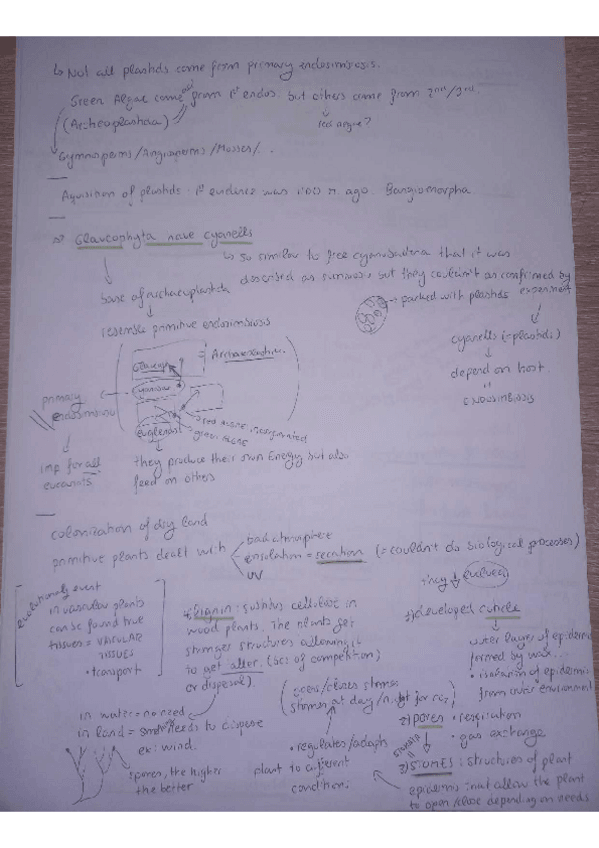 ↳ Not all plastids come from primary endosimbiosis.
Green Algae come from 1st endos. but others come from 2nd/3rd.
(Archeoplastida)
red algae?
Gymnosperms/Angiosperms/Mosses/...
Aquisition of plastids: 1st evidence was ago. Bangiomorpha
Glaucophyta have cyanells
↳ so similar to free cyanobacteria that it was
described as simbiosis but they couldn't as confirmed by
experiment
base of archaeplastida
→ packed with plastids
resembles primitive endosimbiosis
cyanells (=plastids)
depend on host
"
ENDOSIMBIOSIS
Glaucoph = Archaeplastida
primary
endosimbiosis
euglenoids
red algae incorporated
green algae
imp for all
eucariots
they produce their own Energy but also
feed on others
colonization of dry land
primitive plants dealt with
bad atmosphere
insolation = (=couldn't do biological processes)
UV
They evolved
evolutionary event
in vascular plants
can be found true
tissues = VASCULAR
TISSUES
• transport
lignin: cellulose in
wood plants. The plants get
stronger structures allowing it
to get taller. (bcs of competition)
or dispersal).
1) developed cuticle
outer layer of epidermis
formed by wax.
• isolation of epidermis
from outer environment
open/closes stomes
stomes at day/night for
2) pores • respiration
• gas exchange
in water = no need
in land = needs to disperse
ex: wind.
spores, the higher
the better
• regulates/adapts
plant to different
conditions
3) STOMES: structures of plant
epidermis that allow the plant
to open/close depending on needs